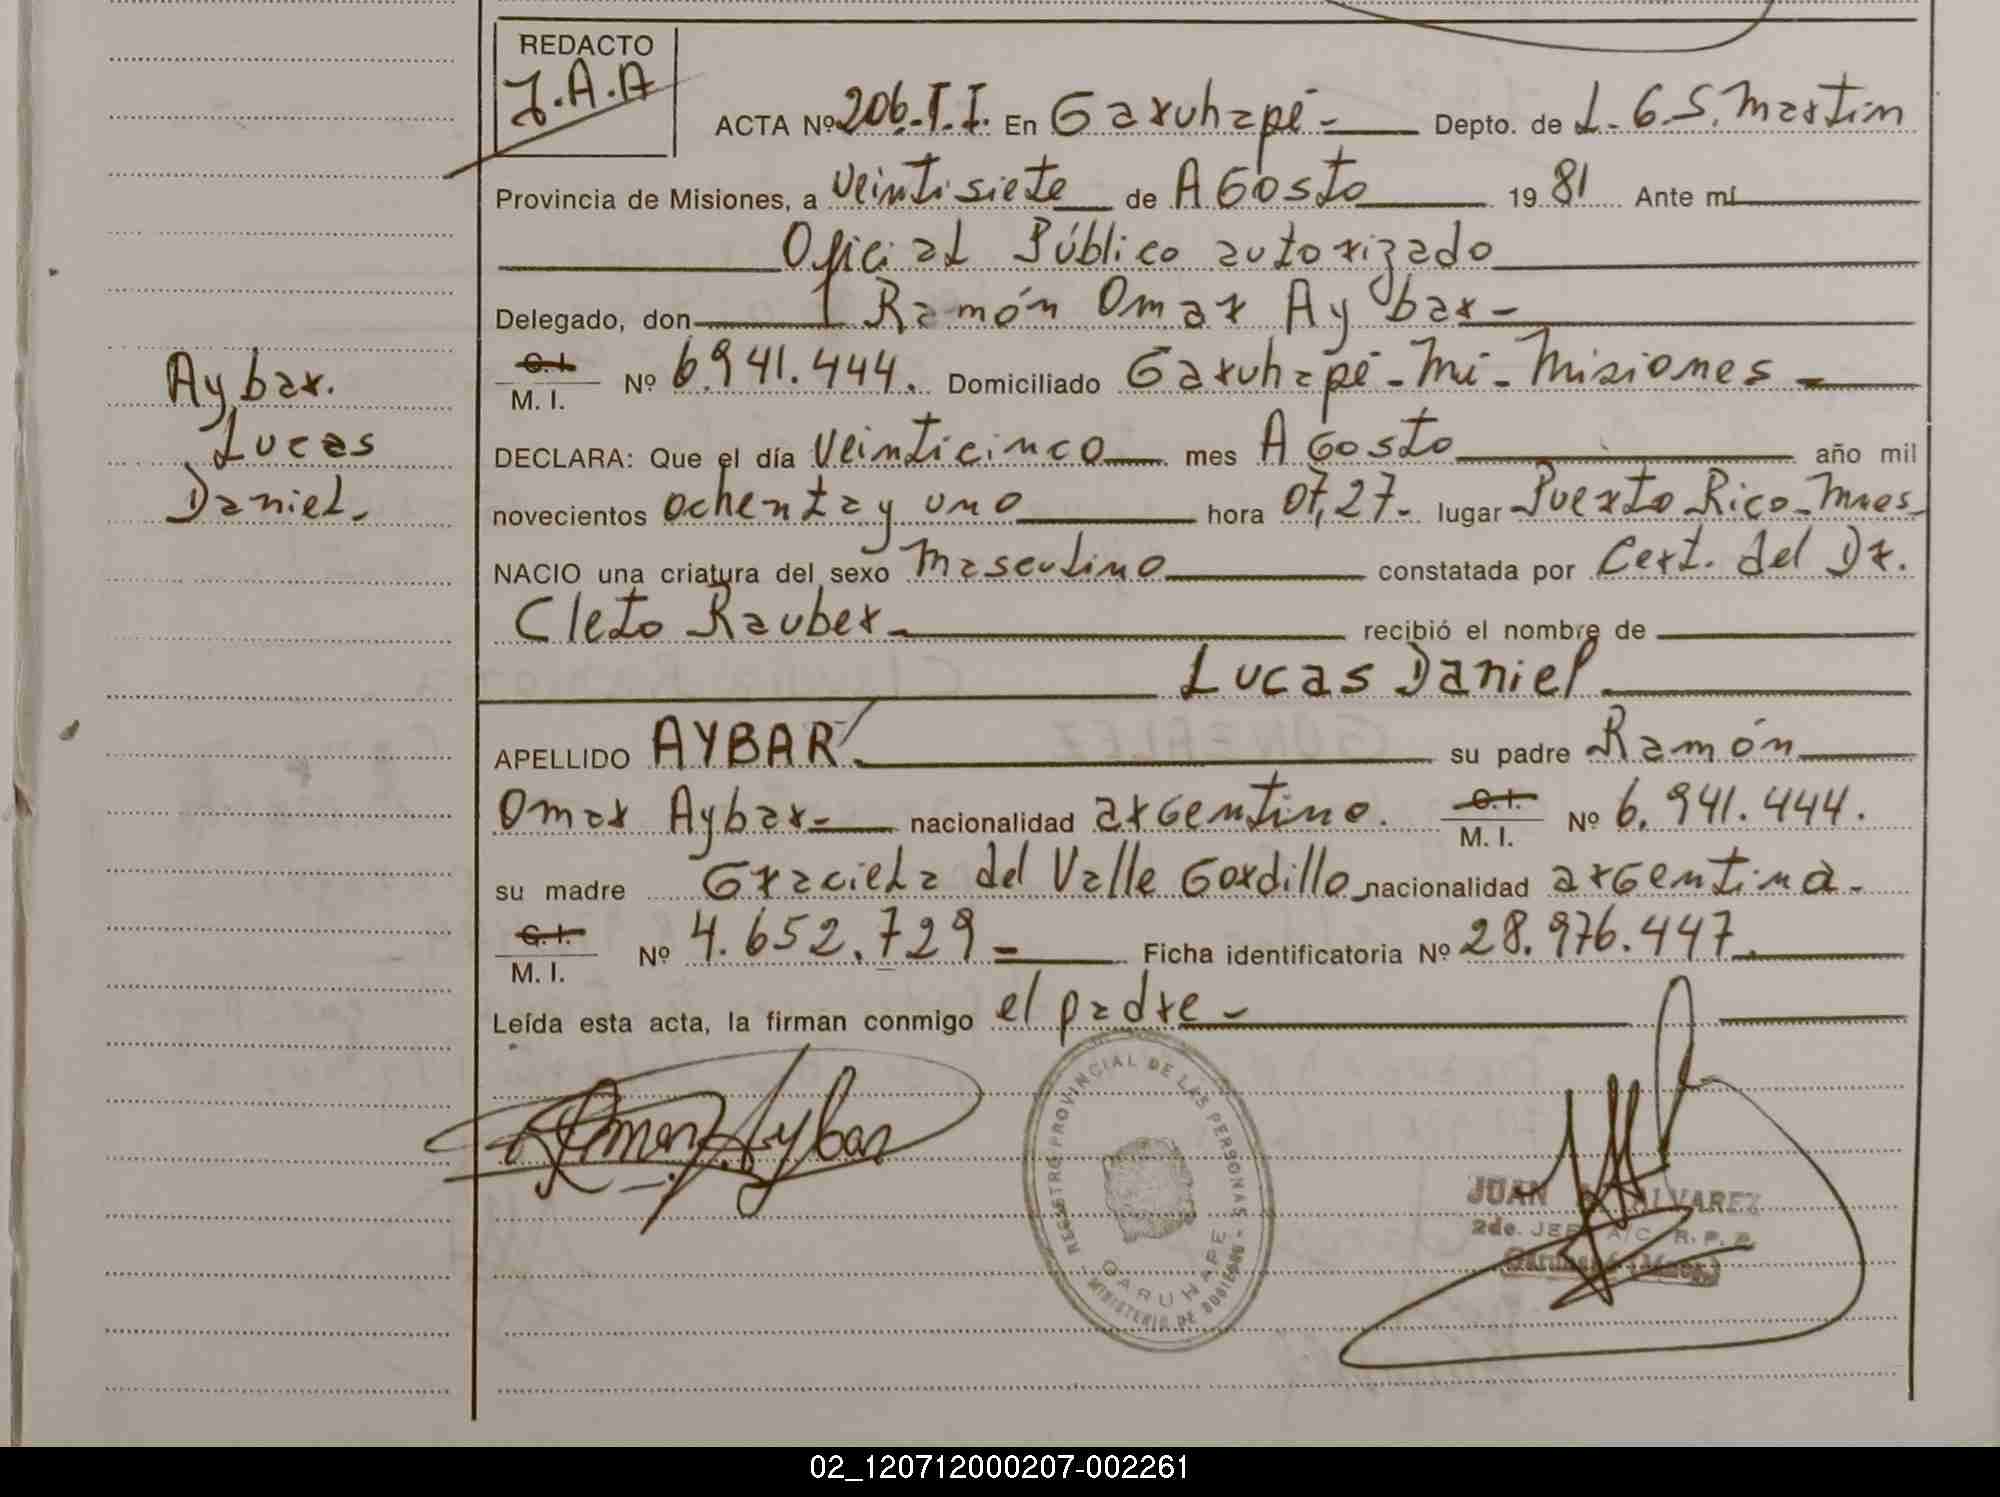 REDACTO
J.A.A
ACTA Nº 206.T.I. En Garuhapé - Depto. de L. G. S. Martin
Provincia de Misiones, a veintisiete de AGosto 19 81 Ante mí
Oficial Público autorizado
Delegado, don Ramón Omar Aybar -
C.I.
M. I. Nº 6.941.444. Domiciliado Garuhapé - Mi - Misiones -
DECLARA: Que el día veinticinco mes AGosto año mil
novecientos ochenta y uno hora 07,27- lugar Puerto Rico - Mnes
NACIO una criatura del sexo masculino constatada por Cert. del Dr.
Cleto Rauber - recibió el nombre de
Lucas Daniel
APELLIDO AYBAR su padre Ramón
Omar Aybar - nacionalidad arGentino. C.I. M. I. Nº 6.941.444.
su madre Graciela del Valle Gordillo nacionalidad arGentina -
C.I.
M. I. Nº 4.652.729 - Ficha identificatoria Nº 28.976.447.
Leída esta acta, la firman conmigo el padre -
Aybar.
Lucas
Daniel -
R. Omar Aybar
REGISTRO PROVINCIAL DE LAS PERSONAS -
GARUHAPE
MINISTERIO DE GOBIERNO
JUAN A. ALVAREZ
2do. JEFE A/C. R. P. P.
Garuhapé (Mnes.)
02_120712000207-002261